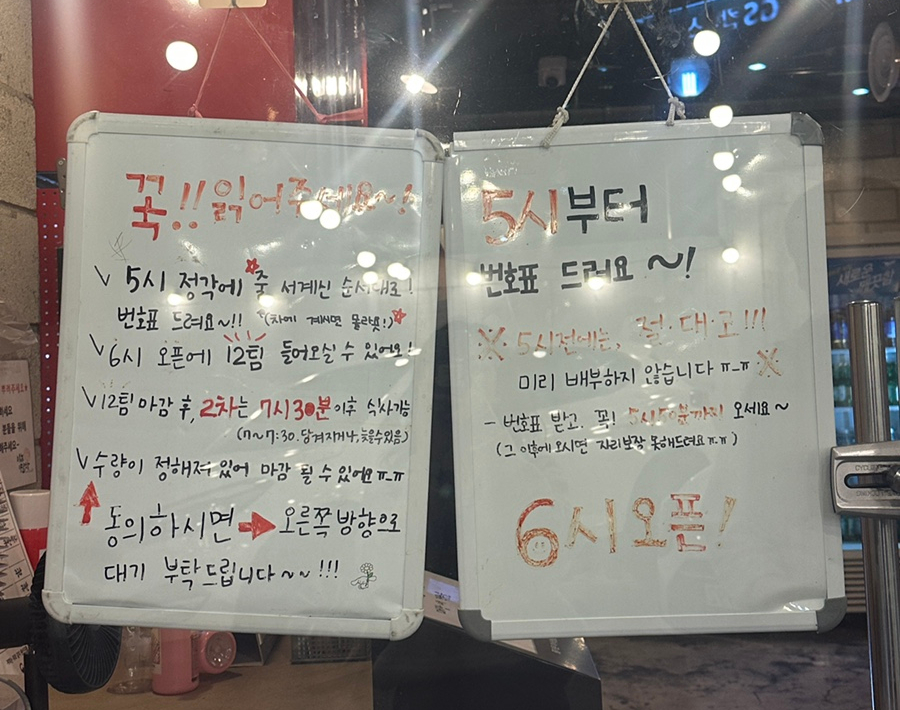 꼭!! 읽어주세요~!
5시 정각에 줄 서계신 순서대로!
번호표 드려요~!! (차에 계시면 몰라욧!)
6시 오픈에 12팀 들어오실 수 있어요!
12팀 마감 후, 2차는 7시30분 이후 식사가능
(7~7:30. 당겨지거나, 늦을수있음)
수량이 정해져 있어 마감 될 수 있어요ㅠ_ㅠ
동의하시면 → 오른쪽 방향으로
대기 부탁드립니다~~!!!
5시부터
번호표 드려요 ~!
※ 5시전에는, 절·대·로!!!
미리 배부하지 않습니다 ㅠ_ㅠ ※
- 번호표 받고. 꼭! 5시50분까지 오세요~
(그 이후에 오시면 자리보장 못해드려요ㅠ.ㅠ)
6시 오픈!
새로운